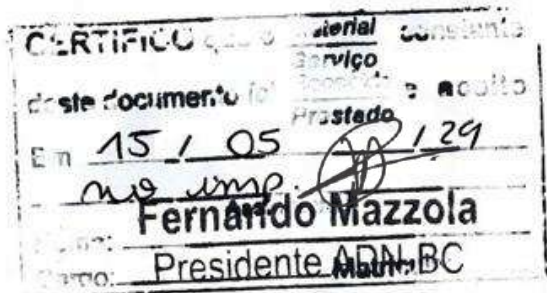 CERTIFICO que o Material constante
Serviço
deste documento foi Recebido e aceito
Prestado
Em 15 / 05 / 29
no imp.
Fernando Mazzola
Nome:
Presidente ADN-BC
Cargo: Matr